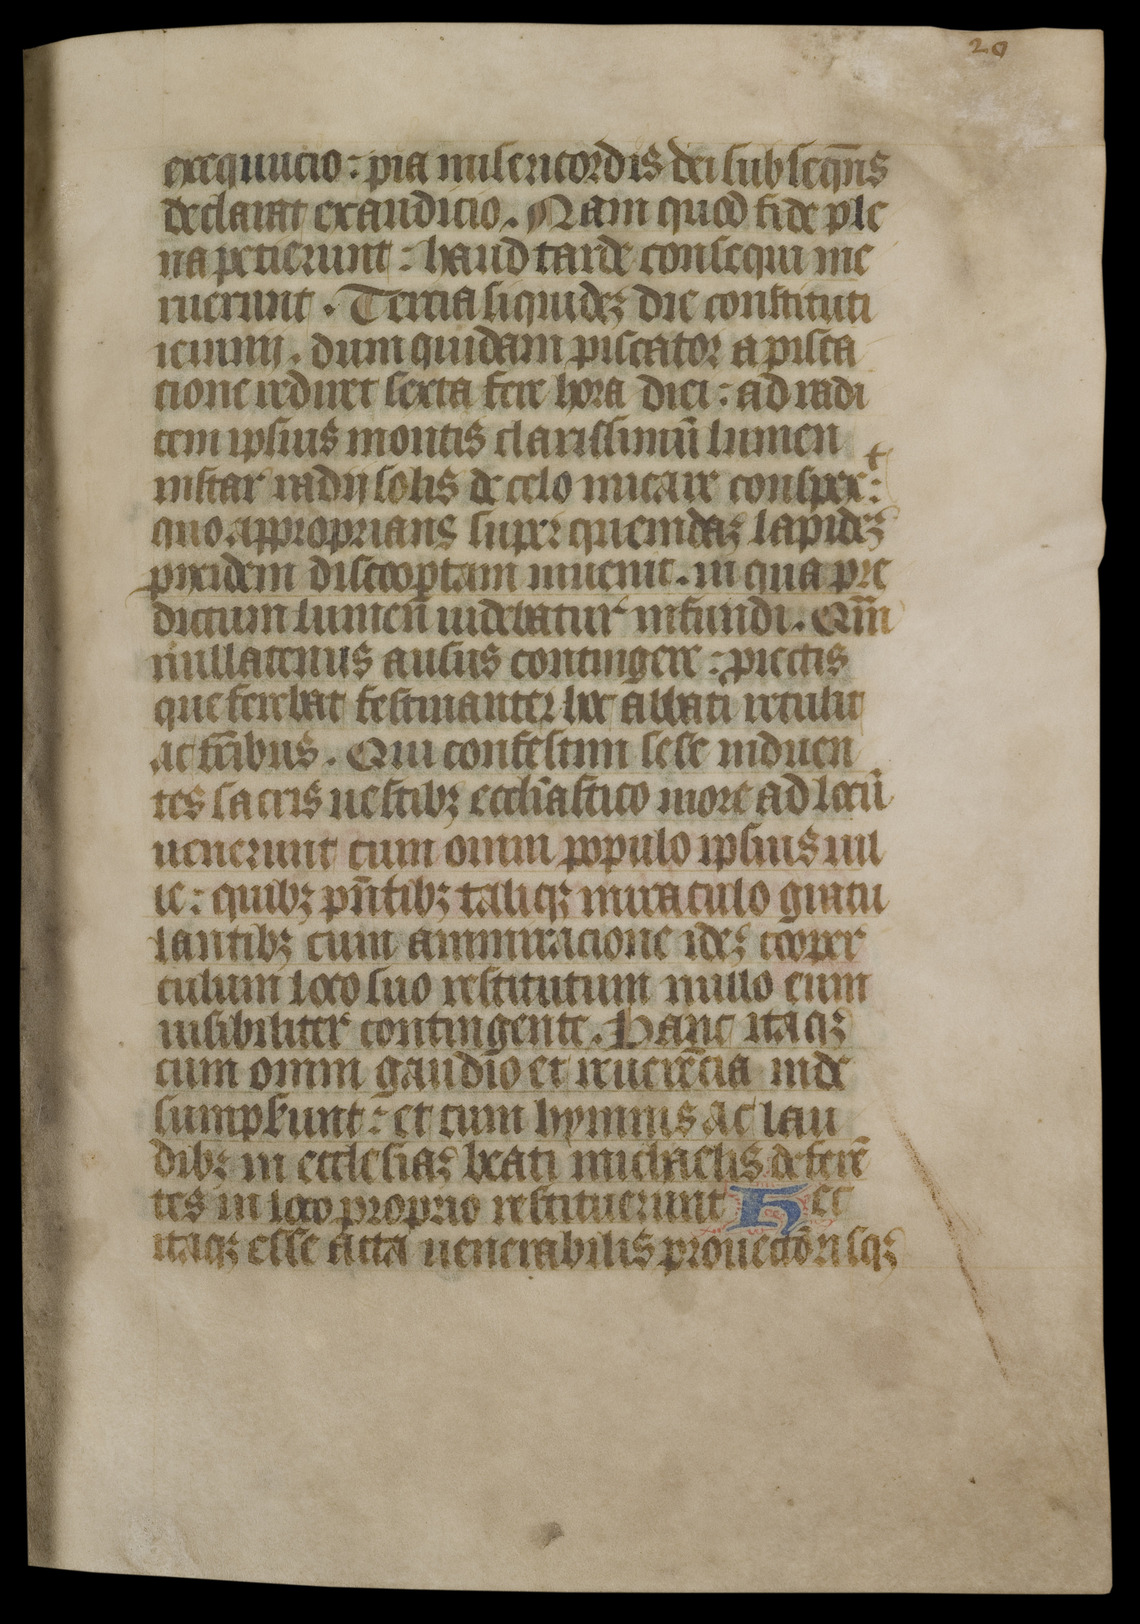 20
exequucio : pia misericordis dei subseq̅ns
declarat exaudicio. Nam quod fide ple
na petierunt : haud tarde consequi me
ruerunt. Tercia siquidez die constituti
ieiunij. dum quidam piscator a pisca
tione rediret sexta fere hora diei : ad radi
cem ipsius montis clarissimū lumen
instar radij solis de celo micare conspexit :
quo approprians super quemdaz lapidez
pixidem discooptam inuenit. in qua pre
dictum lumen uidebatur infundi. Qm̅
nullatenus ausus contingere : piectis
que ferebat festinanter hec abbati retulit
ac fr̅ibus. Qui confestim sese induen
tes sacris uestibꝫ eccl̅iastico more ad locū
uenerunt cum omni populo ipsius uil
le : quibꝫ pn̅tibꝫ taliqꝫ miraculo gratu
lantibꝫ cum ammiracione idez cooper
culum loco suo restitutum nullo eum
uisibiliter contingente. Hanc itaqꝫ
cum omni gaudio et reuerēcia inde
sumpserunt : et cum hymnis ac lau
dibꝫ in ecclesiaz beati michaelis deferē
tes in loco proprio restituerunt Hec
itaqꝫ esse acta uenerabilis prouectōrisqꝫ